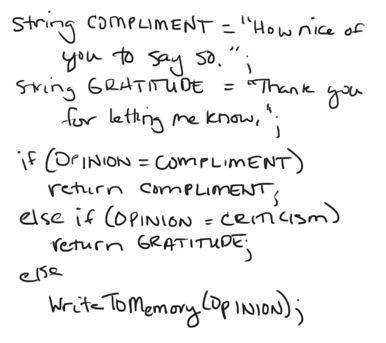 string COMPLIMENT = "How nice of
you to say so.";
string GRATITUDE = "Thank you
for letting me know.";
if (OPINION = COMPLIMENT)
return COMPLIMENT;
else if (OPINION = CRITICISM)
return GRATITUDE;
else
WriteToMemory(OPINION);